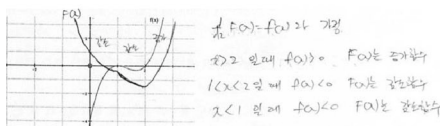 F(x)
f(x)
감소 감소 증가
d/dx F(x) = f(x) 라 가정
x>2 일 때 f(x)>0 F(x)는 증가함수
1<x<2 일 때 f(x)<0 F(x)는 감소함수
x<1 일 때 f(x)<0 F(x)는 감소함수